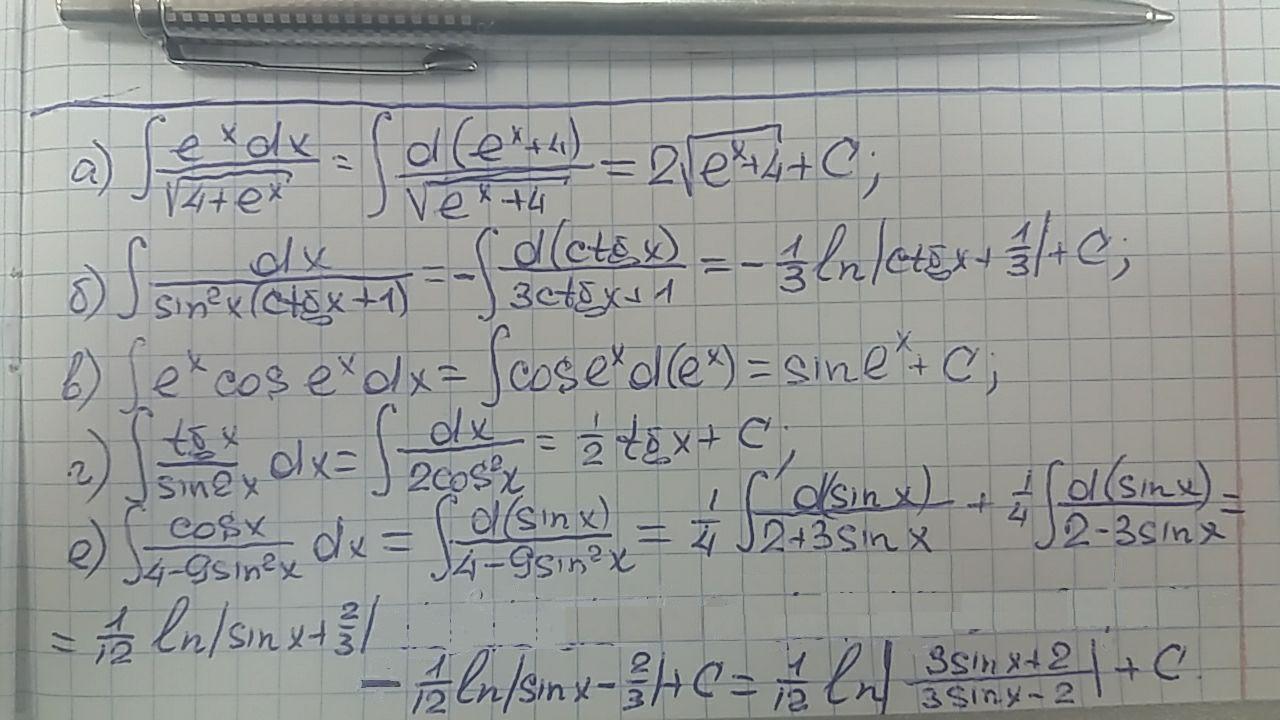 а) ∫ e^x dx / √(4+e^x) = ∫ d(e^x+4) / √(e^x+4) = 2√(e^x+4) + C;
б) ∫ dx / sin²x(ctgx+1) = -∫ d(ctgx) / 3ctgx+1 = -1/3 ln|ctgx+1/3|+C;
в) ∫ e^x cos e^x dx = ∫ cos e^x d(e^x) = sin e^x + C;
г) ∫ tgx / sin2x dx = ∫ dx / 2cos²x = 1/2 tgx + C;
е) ∫ cosx / 4-9sin²x dx = ∫ d(sinx) / 4-9sin²x = 1/4 ∫ d(sinx) / 2+3sinx + 1/4 ∫ d(sinx) / 2-3sinx =
= 1/12 ln|sinx+2/3|
- 1/12 ln|sinx-2/3|+C = 1/12 ln|3sinx+2 / 3sinx-2| + C